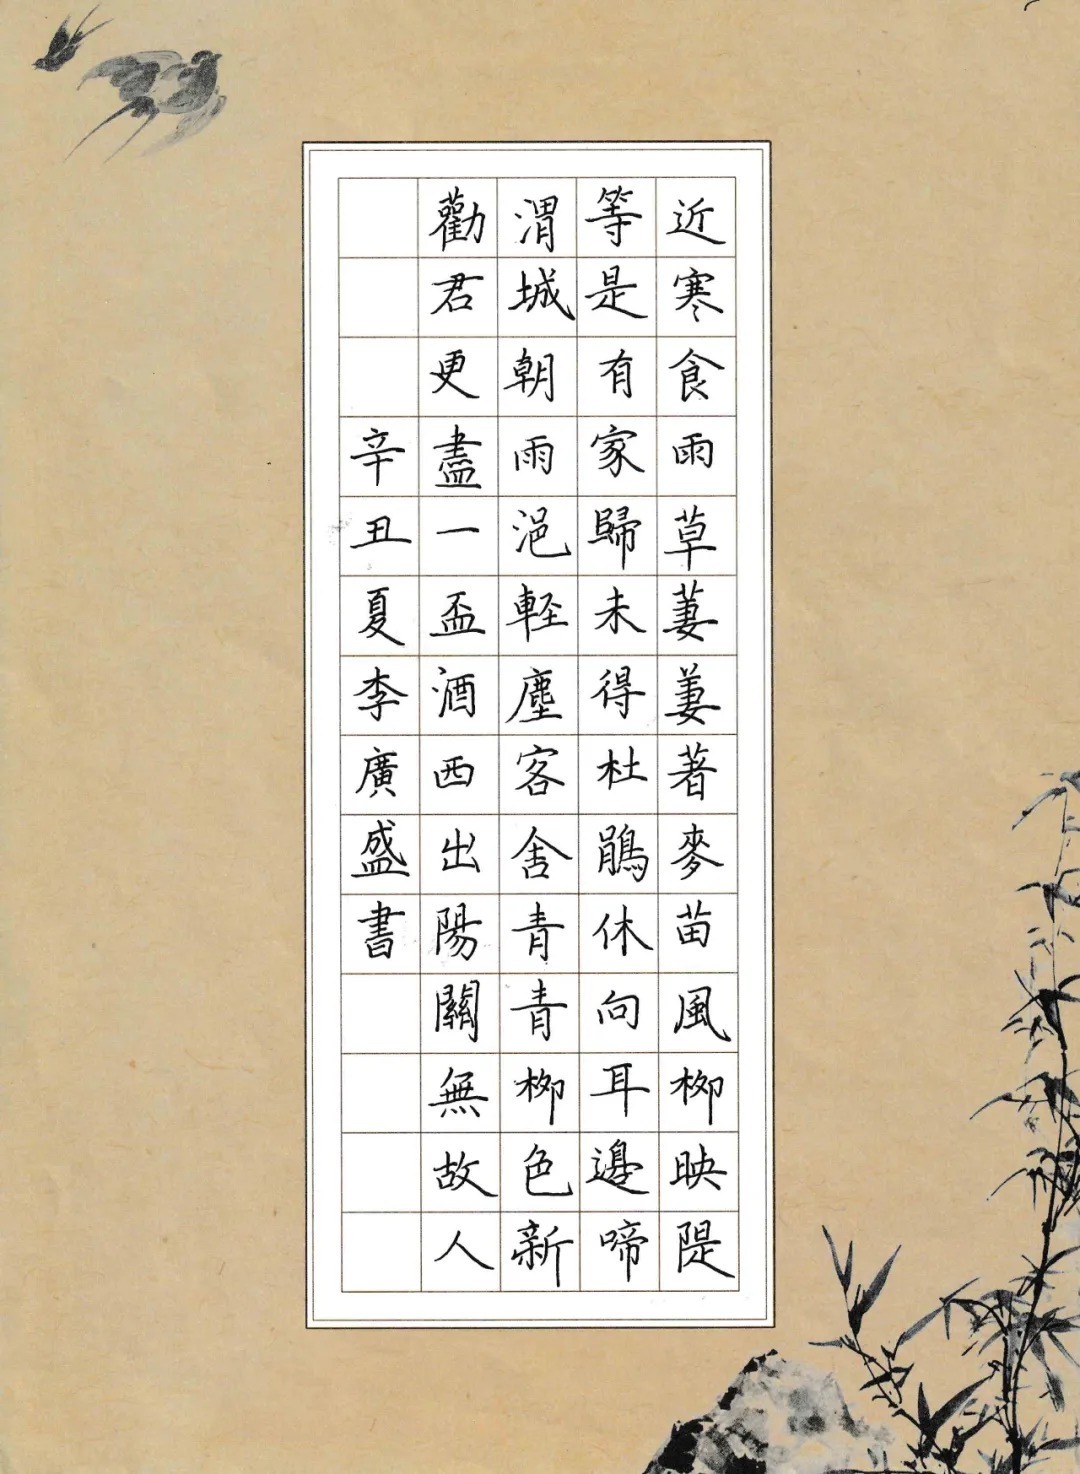 近寒食雨草萋萋著麥苗風柳映隄
等是有家歸未得杜鵑休向耳邊啼
渭城朝雨浥輕塵客舍青青柳色新
勸君更盡一盃酒西出陽關無故人
辛丑夏李廣盛書